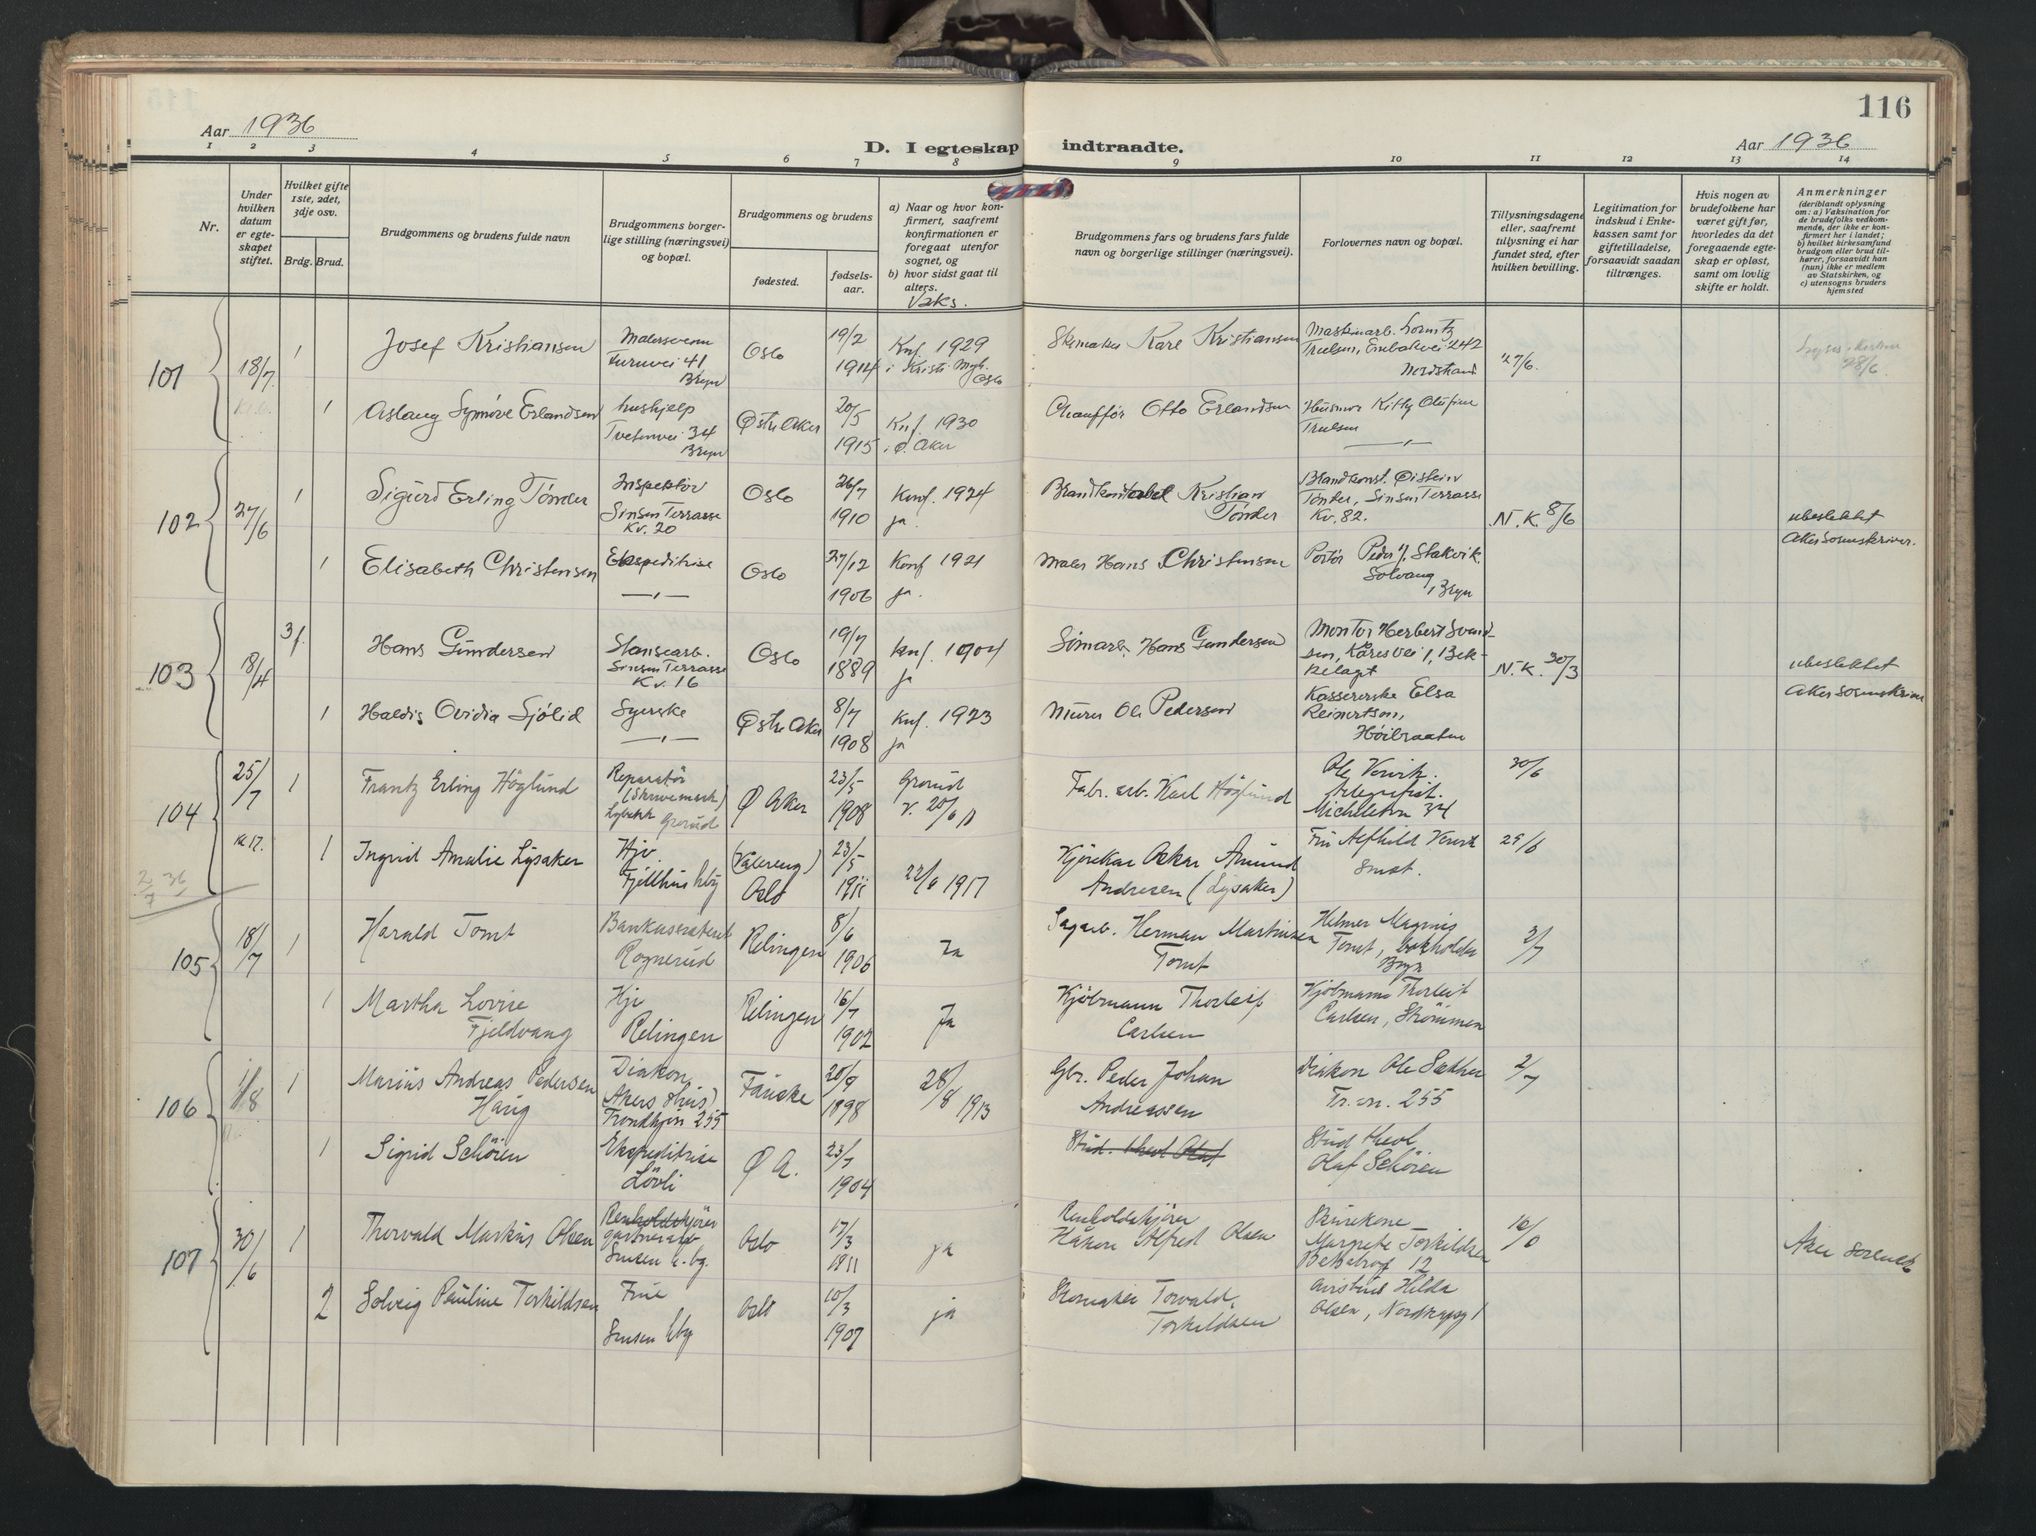 116
Aar 1936
D. I egteskap indtraadte.
Aar 1936
1 2 3 4 5 6 7 8 9 10 11 12 13 14
Nr.
Under
hvilken
datum
er egte-
skapet
stiftet.
Hvilket gifte
1ste, 2det,
3dje osv.
Brdg. Brud.
Brudgommens og brudens fulde navn
Brudgommens borger-
lige stilling (næringsvei)
og bopæl.
Brudgommens og brudens
fødested.
fødsels-
aar.
a) Naar og hvor kon-
firmert, saafremt
konfirmationen er
foregaat utenfor
sognet, og
b) hvor sidst gaat til
alters.
Vaks.
Brudgommens fars og brudens fars fulde
navn og borgerlige stillinger (næringsvei).
Forlovernes navn og bopæl.
Tillysningsdagene
eller, saafremt
tillysning ei har
fundet sted, efter
hvilken bevilling.
Legitimation for
indskud i Enke-
kassen samt for
giftetilladelse,
forsaavidt saadan
tiltrænges.
Hvis nogen av
brudefolkene har
været gift før,
hvorledes da det
foregaaende egte-
skap er opløst,
samt om lovlig
skifte er holdt.
Anmerkninger
(deriblandt oplysning
om: a) Vaksination for
de brudefolks vedkom-
mende, der ikke er kon-
firmert her i landet;
b) hvilket kirkesamfund
brudgom eller brud til-
hører, forsaavidt han
(hun) ikke er medlem
av Statskirken, og
c) utensogns bruders
hjemsted
101 18/7 1 Josef Kristiansen
Malersvenn
Furuvei 41
Bryn
Oslo 19/2
1914
Knf. 1929
i Krist. Mgh.
Oslo
Skomaker Karl Kristiansen
Maskinarb. Lorntz
Truelsen, Enebakvei 242
Nordstrand
27/6
28/6
1 Aslaug Synnøve Erlandsen
hushjelp
Tvetenvei 34
Bryn
Østre Aker 20/5
1915
Knf. 1930
i Ø. Aker
Chauffør Otto Erlandsen
Husmor Kitty Olufine
Truelsen
102 27/6 1 Sigurd Erling Tønder
Inspektør
Sinsen Terrasse
Kv. 20
Oslo 26/7
1910
Konf. 1924
ja.
Brandkonstabel Kristian
Tønder
Brandkonst. Øistein
Tønder, Sinsen Terrasse
Kv. 82.
N.K. 8/6
ubeslektet
Aker Sorenskriver.
1 Elisabeth Christensen
Ekspeditrise
Oslo 27/12
1906
Konf 1921
ja.
Maler Hans Christensen
Portør Peder J. Stakvik
Solvang
, Bryn
103 18/4 3 f. Hans Gundersen
Stansearb.
Sinsen Terrasse
Kv. 16
Oslo 19/7
1889
Knf. 1904
ja
Sømarb. Hans Gundersen
Montør Herbert Svend-
sen, Kåresvei 1, Bek-
kelaget
N.K. 30/3
ubeslektet
Aker Sorenskriver
1 Haldis Ovidia Sjølid
Syerske
Østre Aker 8/7
1908
Knf. 1923
ja
Murer Ole Pedersen
Kassererske Elsa
Reinertson,
Høibraaten
104 25/7 1 Frantz Erling Höglund
Reparatør
(Skrivemask)
Grorud
Ø Aker 23/5
1908
Grorud
Fabr. arb. Karl Höglund
Ole Vervik.
telegrafist.
Micheletvn 34
30/6
kl 17.
1 Ingrid Amalie Lysaker
Hjv.
Fjellhus hby
(Vålereng)
Oslo 23/5
1911
22/6 1917
Kjørekar Oskar Amund
Andresen (Lysaker)
Fru Alfhild Vervik
smst.
29/6
2/7 36
105 18/7 1 Harald Tomt
Bankassistent
Rognerud
Relingen 8/6
1906
Ja
Sagarb. Herman Martinsen
Tomt
Helmer Magnus
Tomt, bokholder
Bryn
2/7
1 Martha Lovise
Fjeldvang
Hjv
Relingen
Relingen 16/7
1902
Ja
Kjøbmann Thorleif
Carlsen
Kjøbmann Thorleif
Carlsen, Strømmen
106 1/8 1 Marius Andreas Pedersen
Haug
Diakon,
Akers shus)
Trondhjvn 255
Fauske 20/9
1898
28/8 1913
Gbr. Peder Johan
Andreassen
Diakon Ole Sæther
Tr. vn. 255
2/7
1 Sigrid Schöien
Ekspeditrise
Løvli
Ø A. 23/7
1904
Stud. theol Olaf
Stud theol
Olaf Schöien
107 30/6 1 Thorvald Markus Olsen
Renholdskjører
Sinsen h.by.
Oslo 17/3
1911
ja
Renholdskjører
Håkon Alfred Olsen
Margrete Torkildsen
12
16/6
Aker sorensk
2 Solveig Pauline Torkildsen
Frue
Sinsen hby
Oslo 10/3
1907
ja
Skomaker Torvald
Torkildsen
Hilda
Olsen,